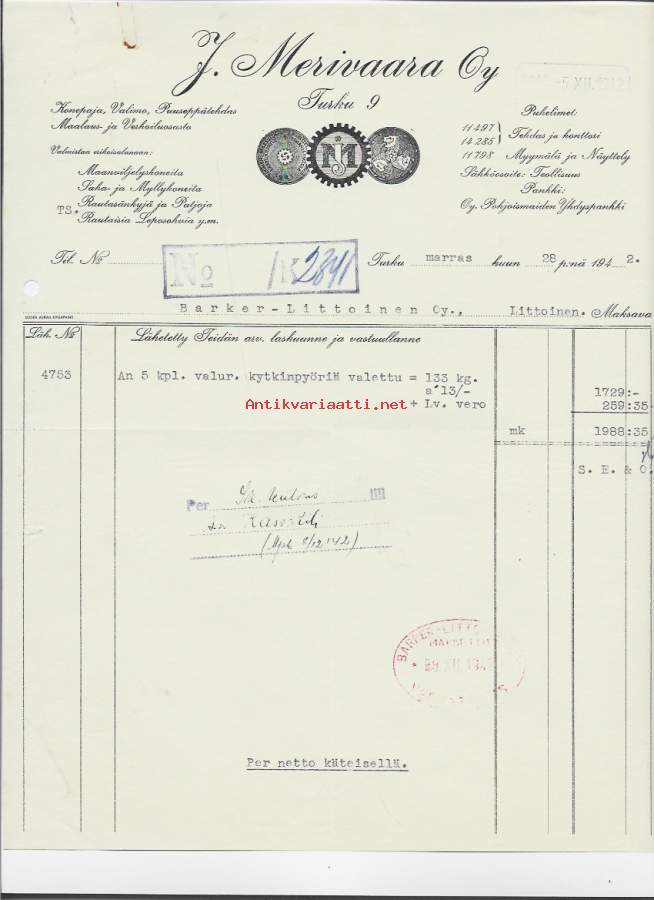 J. Merivaara Oy
Turku 9
Konepaja, Valimo, Puuseppätehdas
Maalaus- ja Verhoiluosasto
Valmistan erikoisalanaan:
Maanviljelyskoneita
Saha- ja Myllykoneita
Rautasänkyjä ja Patjoja
TS. Rautaisia Leposohvia y.m.
JM
XII. 1942
Puhelimet:
11497
14285 } Tehdas ja konttori
11798 Myymälä ja Näyttely
Sähköosoite: Teollisuus
Pankki:
Oy. Pohjoismaiden Yhdyspankki
Til. No
No 2841
Turku marras kuun 28 p:nä 194 2.
Barker-Littoinen Oy., Littoinen. Maksava
Läh. No Lähetetty Teidän arv. laskuunne ja vastuullanne
4753 An 5 kpl. valur. kytkinpyöriä valettu = 133 kg.
a´13/- 1729:-
+ Lv. vero 259:35
mk 1988:35
S. E. & O.
Antikvariaatti.net
Per till
8/12 42
BARKER-LITTO
XII. 194
Per netto käteisellä.